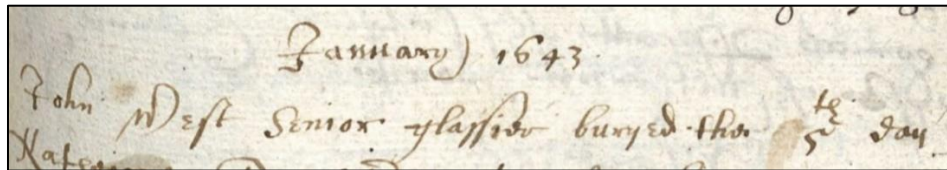 January 1643
John West Senior glassier buryed the 5th day